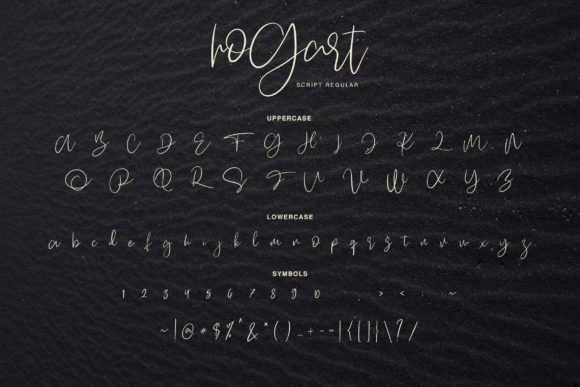 hogart
SCRIPT REGULAR
UPPERCASE
A B C D E F G H I J K L M N
O P Q R S T U V W X Y Z
LOWERCASE
a b c d e f g h i j k l m n o p q r s t u v w x y z
SYMBOLS
1 2 3 4 5 6 7 8 9 0 . , > < : ~
~ | @ # $ % ^ & * ( ) _ + - = | { [ ] } \ ? /